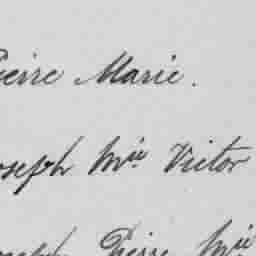 Pierre Marie.
Joseph Mie Victor
Joseph Pierre Mie